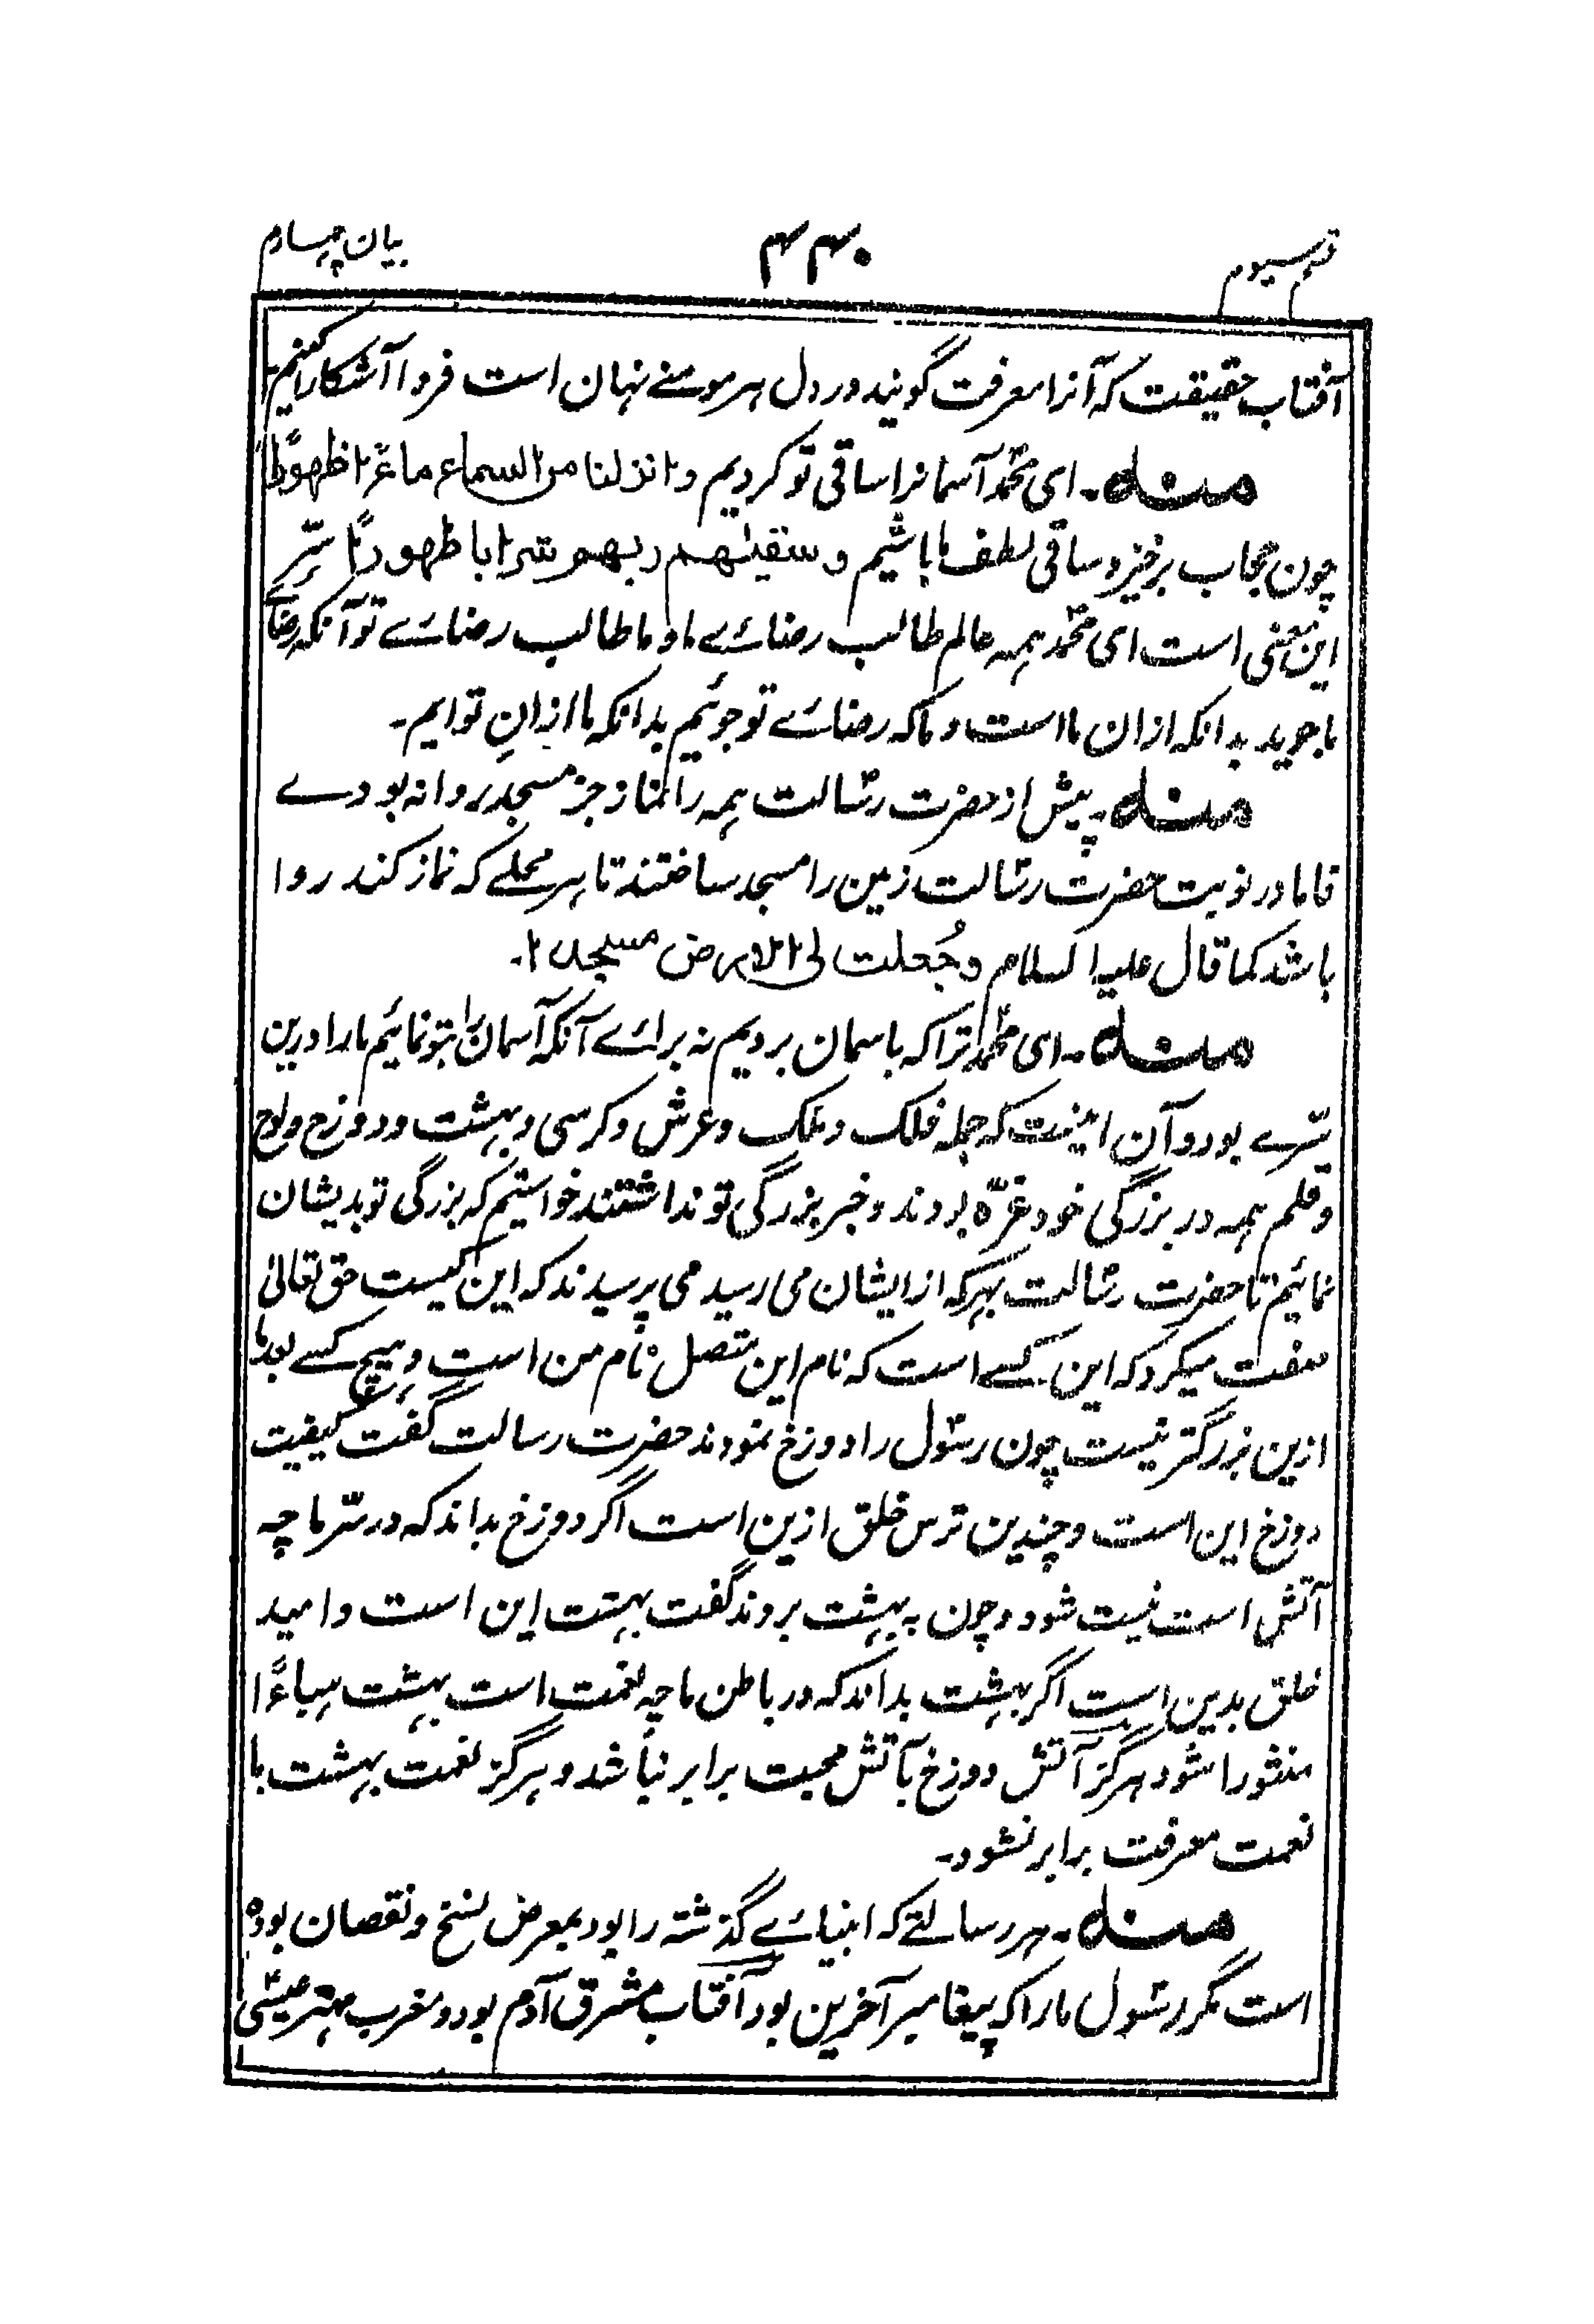 قسم سیوم
۴۴۰
بیان چهارم
آفتاب حقیقت که آنرا معرفت گویند در دل هر مومنے نهان است فردا آشکارا کنیم
منه۔ ای محمدؐ آسمانرا ساقی تو کردیم و انزلنا من السماء ماءً طهورًا
چون حجاب برخیزد ساقی لطف ما باشیم و سقیٰهم ربهم شرابا طهورًا سرّے
این معنی است ای محمدؐ همه عالم طالب رضائے ما و ما طالب رضائے تو آنکه رضائے
ما جوید بدانکه ازان ما است و ما که رضائے تو جوئیم بدانکه ما ازانِ توایم۔
منه۔ پیش از حضرت رسالتؐ همه را نماز جز مسجد روا نه بودے
فاما در نوبت حضرت رسالتؐ زمین را مسجد ساختند تا هر محلے که نماز کند روا
باشد کما قال علیه السلام وجُعلت لی الارض مسجدا۔
منه۔ ای محمدؐ ترا که باسمان بردیم نه برائے آنکه آسمان را بتو نمائیم ما را درین
سرّے بود و آن اینست که جمله فلک و ملک و عرش و کرسی و بهشت و دوزخ و لوح
و قلم همه در بزرگی خود غرّه بودند و خبر بزرگی تو نداشتند خواستیم که بزرگی تو بدیشان
نمائیم تا حضرت رسالتؐ بهر که از ایشان می رسید می پرسیدند که این کیست حق تعالیٰ
صفت میکرد که این کسے است که نام این متصل نام من است و هیچ کسے بعد ما
ازین بزرگتر نیست چون رسولؐ را دوزخ نمودند حضرت رسالت گفت کیفیت
دوزخ این است و چندین ترس خلق ازین است اگر دوزخ بداند که در سرّ ما چه
آتش است نیست شود و چون به بهشت بروند گفت بهشت این است و امید
خلق بدین است اگر بهشت بداند که در باطن ما چه نعمت است بهشت هباءًا
منثورا شود هرگز آتش دوزخ بآتش محبت برابر نباشد و هرگز نعمت بهشت با
نعمت معرفت برابر نشود۔
منه۔ هر رسالتے که انبیائے گذشته را بود بمعرض نسخ و نقصان بوده
است مگر رسولؐ ما را که پیغامبر آخرین بود آفتاب مشرق آدم بود و مغرب مهتر عیسیٰؑ